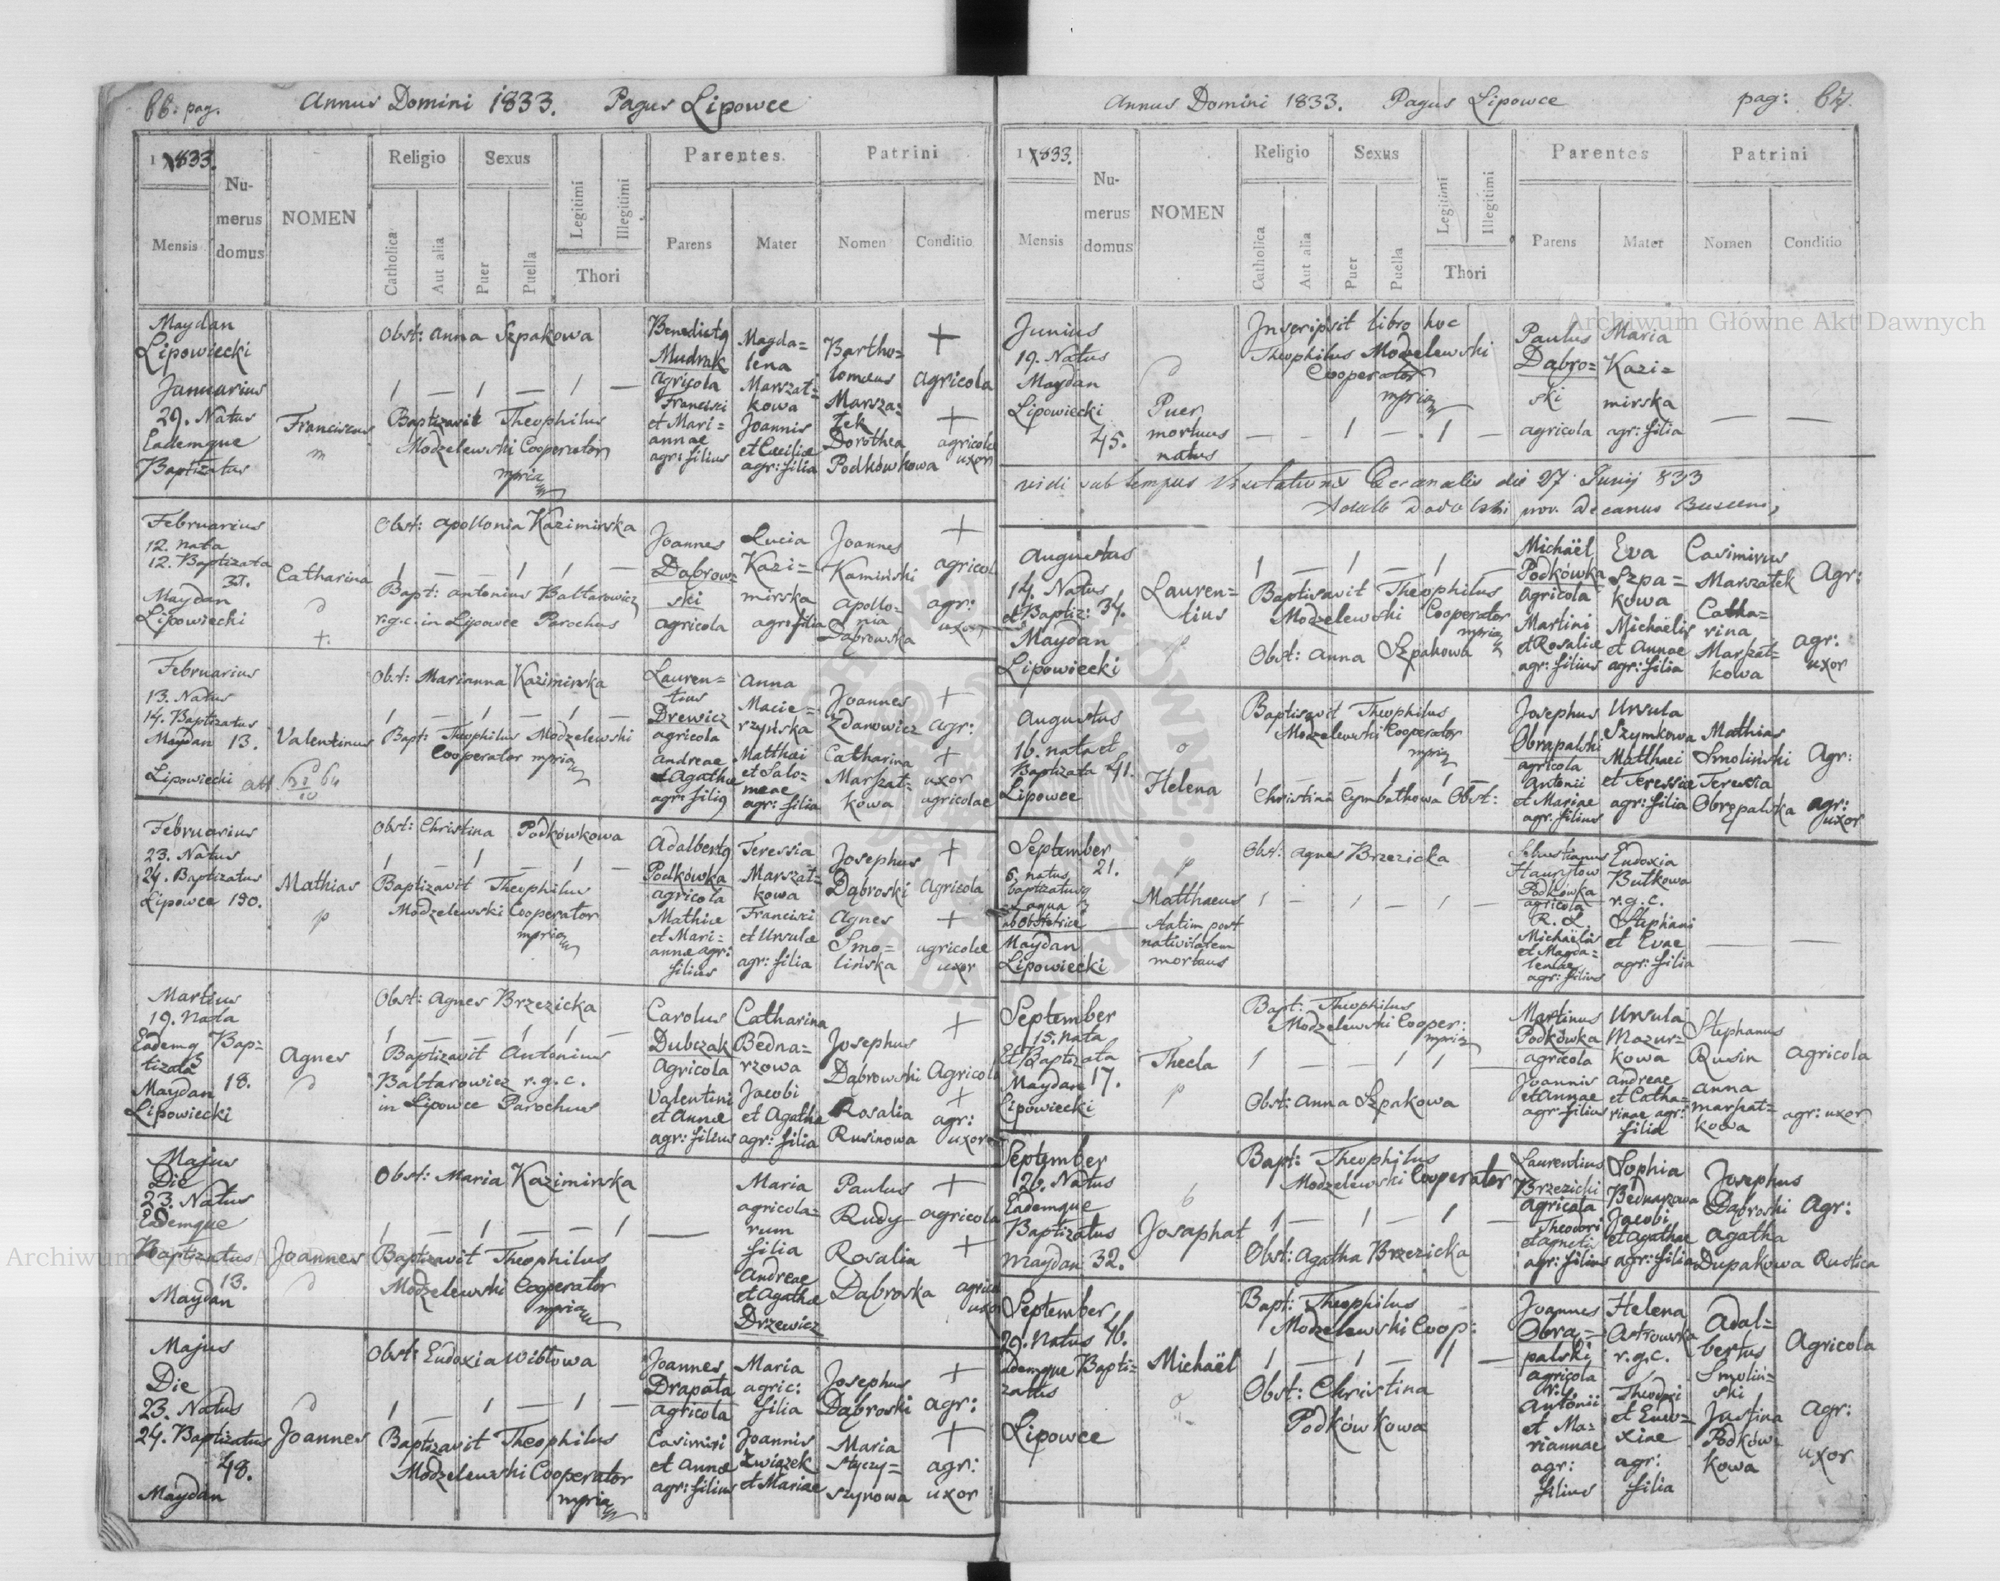 66. pag.
Annus Domini 1833. Pagus Lipowce
1833.
Mensis
Numerus domus
NOMEN
Religio
Catholica
Aut alia
Sexus
Puer
Puella
Legitimi
Illegitimi
Thori
Parentes.
Parens
Mater
Patrini
Nomen
Conditio
Maydan
Lipowiecki
Januarius
29. Natus
Eademque
Baptizatus
Franciscus
Obst: Anna Szpakowa
Baptizavit Theophilus
Modzelewski Cooperator
mpria
Benedictg
Mudrak
Agricola
Francisci
et Mari=
annae
agr: filius
Magda=
lena
Marszał=
kowa
Joannis
et Caeciliae
agr: filia
Bartho=
lomeus
Marsza=
łek
Dorothea
Podkówkowa
+
agricola
+
agricolae
uxor
Februarius
12. nata
12. Baptizata
Maydan
Lipowiecki
Catharina
+.
Obst: Apollonia Kazimirska
Bapt: Antonius Bałtarowicz
r.g.c. in Lipowce Parochus
Joannes
Dąbrow=
ski
agricola
Lucia
Kazi=
mirska
agr: filia
Joannes
Kamiński
Apollo=
nia
Dąbrowska
+
agricol
agr:
uxor
Februarius
13. Natus
14. Baptizatus
Maydan 13.
Lipowiecki
Valentinus
Obst: Marianna Kazimirska
Bapt: Theophilus Modzelewski
Cooperator mpria
Lauren=
tius
Drewicz
agricola
Andreae
et Agathae
agr: filig
Anna
Macie=
rzyńska
Matthaei
et Salo=
meae
agr: filia
Joannes
Zdanowicz
Catharina
Marszał=
kowa
+
agr:
+
uxor
agricolae
Februarius
23. Natus
24. Baptizatus
Lipowce 190.
Mathias
Obst: Christina Podkówkowa
Baptizavit Theophilus
Modzelewski Cooperator
mpria
Adalbertg
Podkówka
agricola
Mathiae
et Mari=
annae agr:
filius
Teressia
Marszał=
kowa
Francisci
et Ursulae
agr: filia
Josephus
Dąbroski
Agnes
Smo=
lińska
+
Agricola
+
agricolae
uxor
Martius
19. Nata
Eademg Bap=
tizata
Maydan 18.
Lipowiecki
Agnes
Obst: Agnes Brzezicka
Baptizavit Antonius
Bałtarowicz r.g.c.
in Lipowce Parochus
Carolus
Dubczak
Agricola
Valentini
et Annae
agr: filius
Catharina
Bedna=
rzowa
Jacobi
et Agathae
agr: filia
Josephus
Dąbrowski
Rosalia
Rusinowa
+
Agricola
+
agr:
uxor
Majus
Die
23. Natus
Eademque
Baptizatus
13.
Maydan
Joannes
Obst: Maria Kazimirska
Baptizavit Theophilus
Modzelewski Cooperator
mpria
Maria
agricola=
rum
filia
Andreae
et Agathae
Drzewicz
Paulus
Rudy
Rosalia
Dąbroska
+
agricola
+
agricol
uxor
Majus
Die
23. Natus
24. Baptizatus
48.
Maydan
Joannes
Obst: Eudoxia Wibłowa
Baptizavit Theophilus
Modzelewski Cooperator
mpria
Joannes
Drapała
agricola
Casimiri
et Annae
agr: filius
Maria
agric:
filia
Joannis
Związek
et Mariae
Josephus
Dąbroski
Maria
Styczy=
szynowa
+
agr:
+
agr:
uxor
Annus Domini 1833. Pagus Lipowce
pag: 67.
1833.
Mensis
Numerus domus
NOMEN
Religio
Catholica
Aut alia
Sexus
Puer
Puella
Legitimi
Illegitimi
Thori
Parentes
Parens
Mater
Patrini
Nomen
Conditio
Junius
19. Natus
Maydan
Lipowiecki
45.
Puer
mortuus
natus
Inscripsit libro hoc
Theophilus Modzelewski
Cooperator
mpria
Paulus
Dąbro=
ski
agricola
Maria
Kazi=
mirska
agr: filia
vidi sub tempus Visitationis Decanalis die 27 Junij 833
Augustus
14. Natus
et Baptiz: 34.
Maydan
Lipowiecki
Lauren=
tius
Baptisavit Theophilus
Modzelewski Cooperator
mpria
Obst: Anna Szpakowa
Michaël
Podkówka
Agricola
Martini
et Rosaliae
agr: filius
Eva
Szpa=
kowa
Michaëlis
et Annae
agr: filia
Casimirus
Marszałek
Catha=
rina
Marszał=
kowa
Agr:
agr:
uxor
Augustus
16. nata et
Baptizata 41.
Lipowce
Helena
Baptisavit Theophilus
Modzelewski Cooperator
mpria
Christina Cymbałkowa Obst:
Josephus
Obrapalski
agricola
Antonii
et Mariae
agr: filius
Ursula
Szymkowa
Matthaei
et Teressiae
agr: filia
Matthias
Smoliński
Teressia
Obrępalska
Agr:
agr:
uxor
September
21.
6. natus,
baptizatusg
ex aqua
ab obstetrice
Maydan
Lipowiecki
Matthaeus
statim post
nativitatem
mortuus
Obst: Agnes Brzezicka
Podkówka
agricola
R. L.
Michaëlis
et Magda=
lenae
agr: filius
Eudoxia
Butkowa
r.g.c.
Stephani
et Evae
agr: filia
September
15. nata
Et Baptizata
Maydan 17.
Lipowiecki
Thecla
Bapt: Theophilus
Modzelewski Cooper:
mpria
Obst: Anna Szpakowa
Martinus
Podkówka
agricola
Joannis
et Annae
agr: filius
Ursula
Mazur=
kowa
Andreae
et Catha=
rinae agr:
filia
Stephanus
Rusin
Anna
Marszał=
kowa
Agricola
agr: uxor
September
26. Natus
Eademque
Baptizatus
Maydan 32.
Josaphat
Bapt: Theophilus
Modzelewski Cooperator
Obst: Agatha Brzezicka
Laurentius
Brzezicki
agricola
Theodori
et Agnetis
agr: filius
Sophia
Bednarzowa
Jacobi
et Agathae
agr: filia
Josephus
Dąbroski
Agatha
Dupakowa
Agr:
Rustica
September
29. Natus 46.
Eademque Bapti=
zatus
Lipowce
Michaël
Bapt: Theophilus
Modzelewski Coop:
Obst: Christina
Podkówkowa
Joannes
Obra=
palski
agricola
r.l.
Antonii
et Ma=
riannae
agr:
filius
Helena
Astrowska
r.g.c.
Theodori
et Eudo=
xiae
agr:
filia
Adal=
bertus
Smoliń=
ski
Justina
Podków=
kowa
Agricola
Agr:
uxor
Archiwum Główne Akt Dawnych